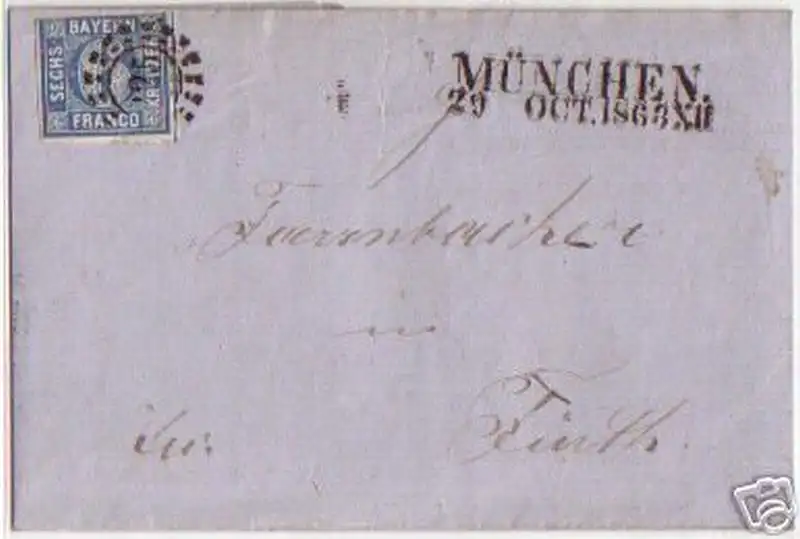 BAYERN
SECHS
KREUZER
FRANCO
MÜNCHEN.
29 OCT. 1863 XII
Farrnbacher
in
Fürth.